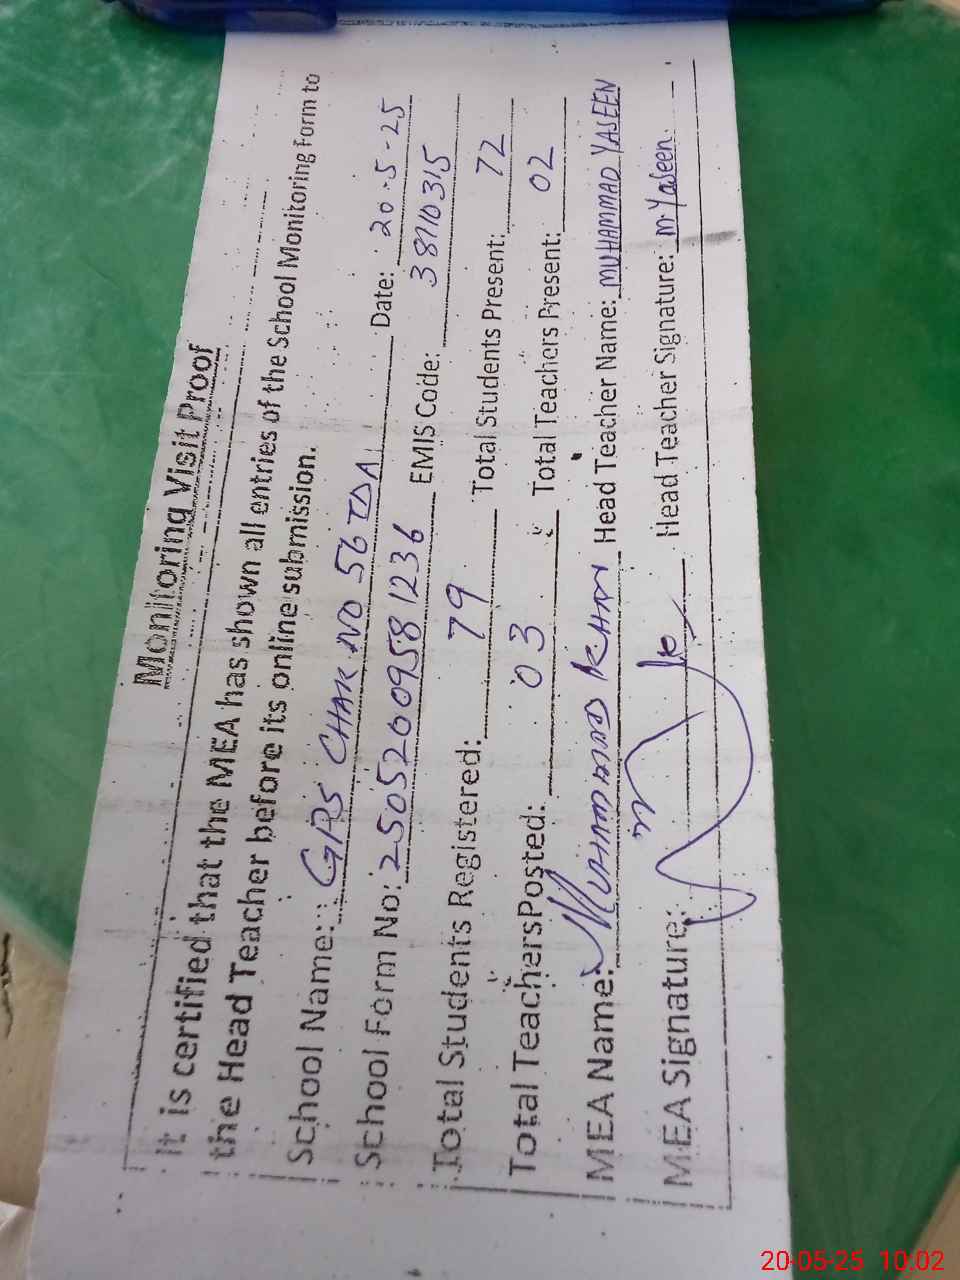 Monitoring Visit Proof
It is certified that the MEA has shown all entries of the School Monitoring Form to
the Head Teacher before its online submission.
School Name: GPS CHAK NO 56 TDA Date: 20-5-25
School Form No: 2505200958 1236 EMIS Code: 38110315
Total Students Registered: 79 Total Students Present: 72
Total TeachersPosted: 03 Total Teachers Present: 02
MEA Name: KHAN Head Teacher Name: MUHAMMAD YASEEN
MEA Signature: Head Teacher Signature: M.Yaseen
20-05-25 10:02